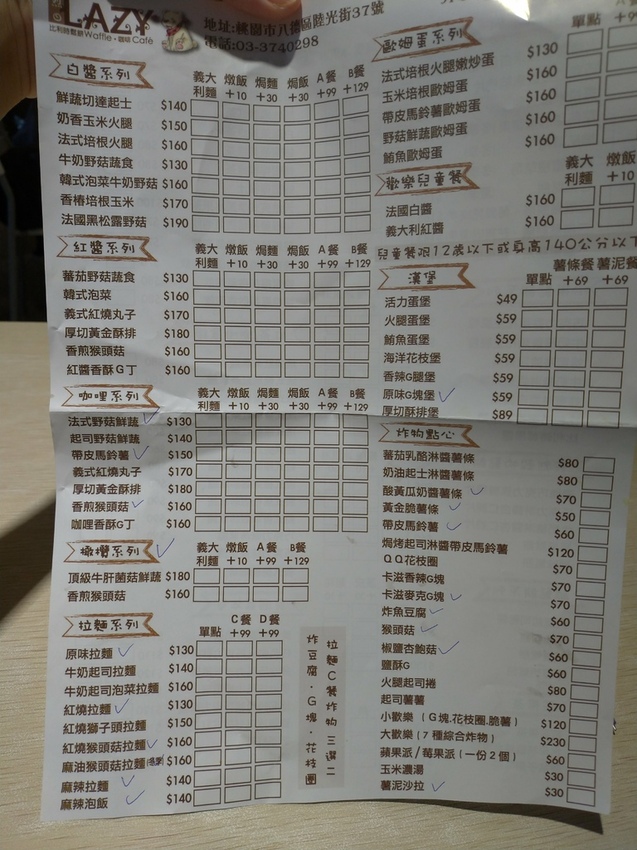 LAZY
比利時鬆餅Waffle・咖啡Café
地址:桃園市八德區陸光街37號
電話:03-3740298
白醬系列 義大利麵 燉飯+10 焗麵+30 焗飯+30 A餐+99 B餐+129
鮮蔬切達起士 $140
奶香玉米火腿 $150
法式培根火腿 $160
牛奶野菇蔬食 $130
韓式泡菜牛奶野菇 $160
香椿培根玉米 $170
法國黑松露野菇 $190
紅醬系列 義大利麵 燉飯+10 焗麵+30 焗飯+30 A餐+99 B餐+129
蕃茄野菇蔬食 $130
韓式泡菜 $160
義式紅燒丸子 $170
厚切黃金酥排 $180
香煎猴頭菇 $160
紅醬香酥G丁 $160
咖哩系列 義大利麵 燉飯+10 焗麵+30 焗飯+30 A餐+99 B餐+129
法式野菇鮮蔬 $130
起司野菇鮮蔬 $140
帶皮馬鈴薯 $150
義式紅燒丸子 $170
厚切黃金酥排 $180
香煎猴頭菇 $160
咖哩香酥G丁 $160
橄欖系列 義大利麵 燉飯+10 A餐+99 B餐+129
頂級牛肝菌菇鮮蔬 $180
香煎猴頭菇 $160
拉麵系列 單點 C餐+99 D餐+99
原味拉麵 $130
牛奶起司拉麵 $140
牛奶起司泡菜拉麵 $160
紅燒拉麵 $130
紅燒獅子頭拉麵 $150
紅燒猴頭菇拉麵 $160
麻油猴頭菇拉麵 $160
麻辣拉麵 $140
麻辣泡飯 $140
拉麵C餐炸物三選二
炸豆腐・G塊・花枝圈
歐姆蛋系列 單點
法式培根火腿嫩炒蛋 $130
玉米培根歐姆蛋 $160
帶皮馬鈴薯歐姆蛋 $160
野菇鮮蔬歐姆蛋 $160
鮪魚歐姆蛋 $160
歡樂兒童餐 義大利麵 燉飯+10
法國白醬 $160
義大利紅醬 $160
兒童餐限12歲以下或身高140公分以下
漢堡 單點 薯條餐+69 薯泥餐+69
活力蛋堡 $49
火腿蛋堡 $59
鮪魚蛋堡 $59
海洋花枝堡 $59
香辣G腿堡 $59
原味G塊堡 $59
厚切酥排堡 $89
炸物點心
蕃茄乳酪淋醬薯條 $80
奶油起士淋醬薯條 $80
酸黃瓜奶醬薯條 $70
黃金脆薯條 $50
帶皮馬鈴薯 $60
焗烤起司淋醬帶皮馬鈴薯 $120
QQ花枝圈 $70
卡滋香辣G塊 $70
卡滋麥克G塊 $70
炸魚豆腐 $60
猴頭菇 $70
椒鹽杏鮑菇 $60
鹽酥G $60
火腿起司捲 $80
起司薯薯 $70
小歡樂（G塊.花枝圈.脆薯） $120
大歡樂（7種綜合炸物） $230
蘋果派/莓果派（一份2個） $60
玉米濃湯 $30
薯泥沙拉 $30